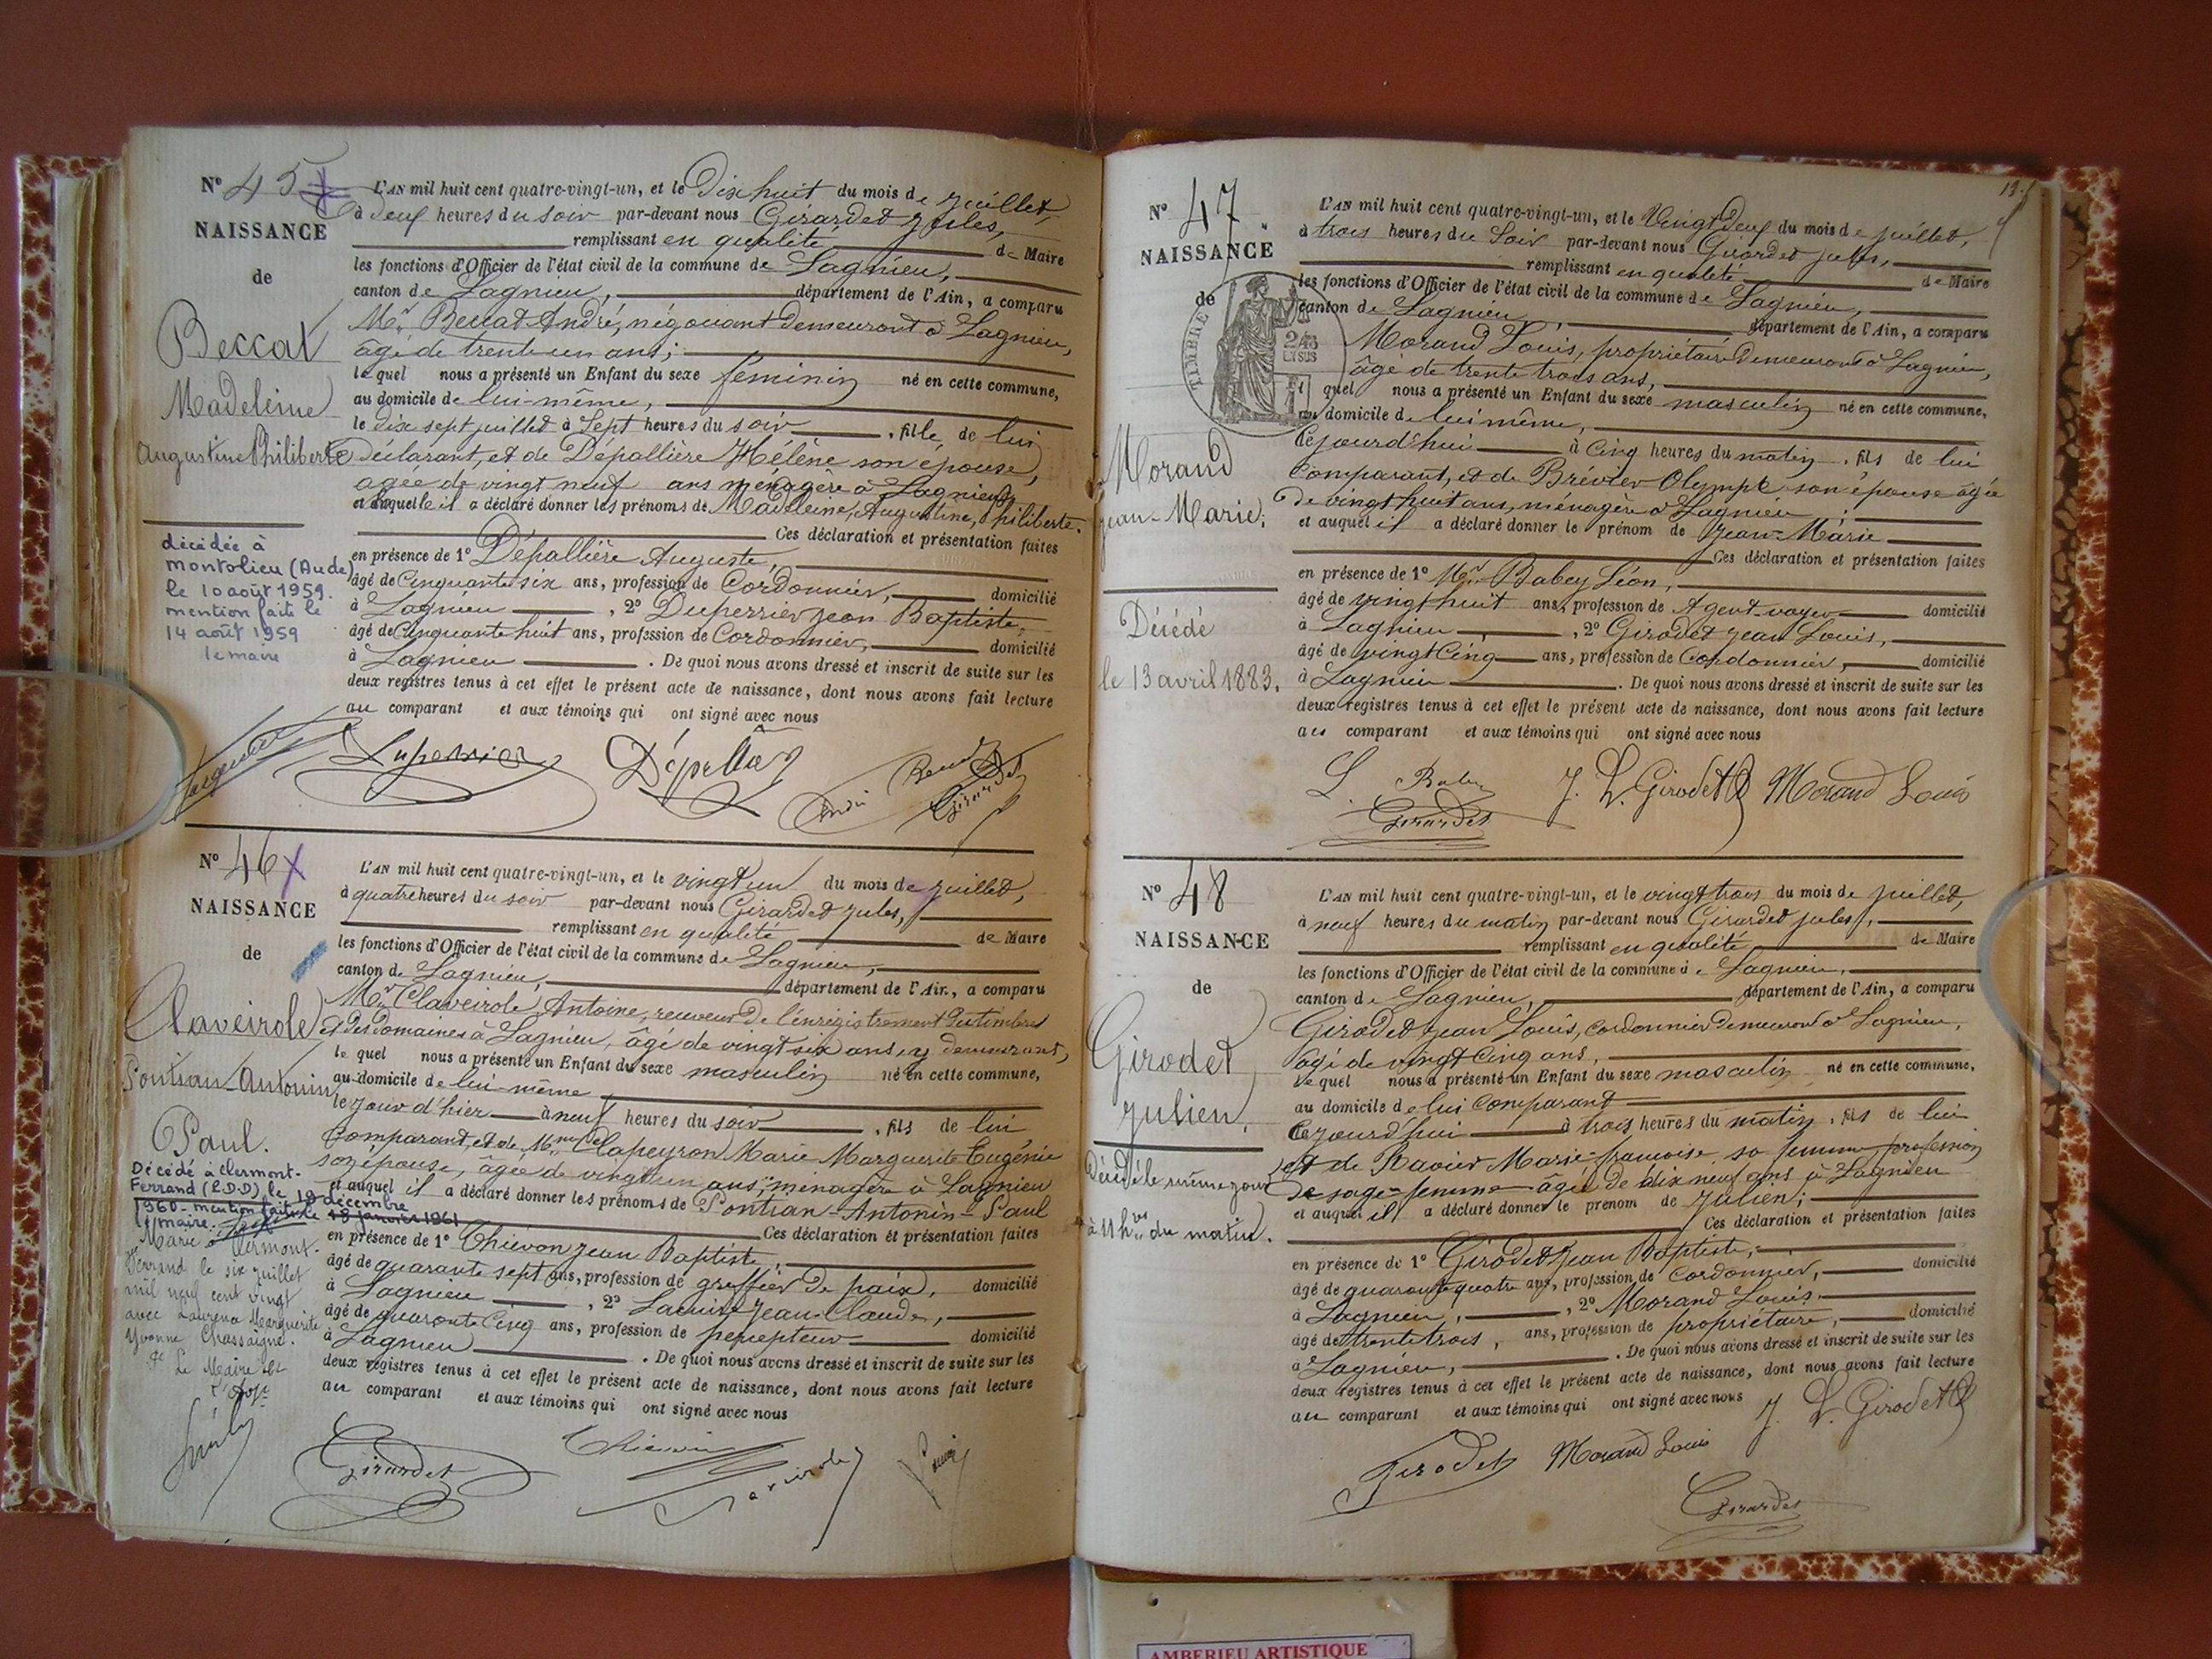 N° 45
NAISSANCE
de
Beccat
Madeleine
Augustine Philiberte
décédée à
Montolieu (Aude)
le 10 août 1959.
mention faite le
14 août 1959
le maire
L'AN mil huit cent quatre-vingt-un, et le Dix huit du mois de juillet,
à deux heures du soir par-devant nous Girardet Jules,
remplissant en qualité de Maire
les fonctions d'Officier de l'état civil de la commune de Lagnieu,
canton de Lagnieu, département de l'Ain, a comparu
Mr Beccat André, négociant demeurant à Lagnieu,
âgé de trente un ans;
lequel nous a présenté un Enfant du sexe féminin né en cette commune,
au domicile de lui-même,
le dix sept juillet à Sept heures du soir, fille de lui
déclarant, et de Dépallière Hélène son épouse,
âgée de vingt neuf ans ménagère à Lagnieu,
et à laquelle il a déclaré donner les prénoms de Madeleine, Augustine, Philiberte.
Ces déclaration et présentation faites
en présence de 1° Dépallière Auguste,
âgé de Cinquante six ans, profession de Cordonnier, domicilié
à Lagnieu, 2° Duperrier Jean Baptiste,
âgé de Cinquante huit ans, profession de Cordonnier, domicilié
à Lagnieu. De quoi nous avons dressé et inscrit de suite sur les
deux registres tenus à cet effet le présent acte de naissance, dont nous avons fait lecture
au comparant et aux témoins qui ont signé avec nous
Girardet
N° 46
NAISSANCE
de
Claveirole
Pontian-Antonin
Paul.
Décédé à Clermont-
Ferrand (P.D.D) le 19 décembre
1960 - mention faite le 18 janvier 1961
le maire.
Marié à Clermont-
Ferrand le six juillet
mil neuf cent vingt
avec Laurena Marguerite
Yvonne Chassaigne.
Le Maire
L'AN mil huit cent quatre-vingt-un, et le vingt un du mois de juillet,
à quatre heures du soir par-devant nous Girardet Jules,
remplissant en qualité de Maire
les fonctions d'Officier de l'état civil de la commune de Lagnieu,
canton de Lagnieu, département de l'Ain, a comparu
Mr Claveirole, Antoine, receveur de l'enregistrement des timbres
et des domaines à Lagnieu, âgé de vingt six ans, y demeurant,
lequel nous a présenté un Enfant du sexe masculin né en cette commune,
au domicile de lui-même
le jour d'hier à neuf heures du soir, fils de lui
Comparant, et de Mme Clapeyron Marie Marguerite Eugénie
son épouse, âgée de vingt un ans, ménagère à Lagnieu
et auquel il a déclaré donner les prénoms de Pontian-Antonin-Paul
Ces déclaration et présentation faites
en présence de 1° Chievon Jean Baptiste,
âgé de quarante sept ans, profession de greffier de paix, domicilié
à Lagnieu, 2° Jean Claude,
âgé de quarante Cinq ans, profession de percepteur domicilié
à Lagnieu. De quoi nous avons dressé et inscrit de suite sur les
deux registres tenus à cet effet le présent acte de naissance, dont nous avons fait lecture
au comparant et aux témoins qui ont signé avec nous
Girardet
N° 47
NAISSANCE
de
TIMBRE
Morand
Jean-Marie.
Décédé
le 13 avril 1883.
L'AN mil huit cent quatre-vingt-un, et le Vingt Deux du mois de juillet,
à trois heures du Soir par-devant nous Girardet Jules,
remplissant en qualité de Maire
les fonctions d'Officier de l'état civil de la commune de Lagnieu,
canton de Lagnieu, département de l'Ain, a comparu
Morand Louis, propriétaire demeurant à Lagnieu,
âgé de trente trois ans,
quel nous a présenté un Enfant du sexe masculin né en cette commune,
au domicile de lui même,
Cejourd'hui à Cinq heures du matin, fils de lui
Comparant, et de Brévier Olympe, son épouse âgée
de vingt huit ans, ménagère à Lagnieu;
et auquel il a déclaré donner le prénom de Jean-Marie
Ces déclaration et présentation faites
en présence de 1° Mr Babey Léon,
âgé de vingt huit ans, profession de Agent-voyer domicilié
à Lagnieu, 2° Girodet Jean Louis,
âgé de vingt Cinq ans, profession de Cordonnier, domicilié
à Lagnieu. De quoi nous avons dressé et inscrit de suite sur les
deux registres tenus à cet effet le présent acte de naissance, dont nous avons fait lecture
au comparant et aux témoins qui ont signé avec nous
L. Babey J. L. Girodet Morand Louis
Girardet
N° 48
NAISSANCE
de
Girodet
Julien.
Décédé le même jour
à 11 hres du matin.
L'AN mil huit cent quatre-vingt-un, et le vingt trois du mois de juillet,
à neuf heures du matin par-devant nous Girardet Jules,
remplissant en qualité de Maire
les fonctions d'Officier de l'état civil de la commune de Lagnieu,
canton de Lagnieu, département de l'Ain, a comparu
Girodet Jean Louis, Cordonnier demeurant à Lagnieu,
âgé de vingt Cinq ans,
lequel nous a présenté un Enfant du sexe masculin né en cette commune,
au domicile de lui Comparant
Cejourd'hui à trois heures du matin, fils de lui
et de Ravier Marie-françoise, sa femme, profession
de sage-femme âgée de dix neuf ans à Lagnieu
et auquel il a déclaré donner le prénom de Julien;
Ces déclaration et présentation faites
en présence de 1° Girodet Jean Baptiste,
âgé de quarante quatre ans, profession de Cordonnier, domicilié
à Lagnieu, 2° Morand Louis
âgé de trente trois, ans, profession de propriétaire, domicilié
à Lagnieu, De quoi nous avons dressé et inscrit de suite sur les
deux registres tenus à cet effet le présent acte de naissance, dont nous avons fait lecture
au comparant et aux témoins qui ont signé avec nous J. L. Girodet
Girodet Morand Louis
Girardet
AMBERIEU ARTISTIQUE